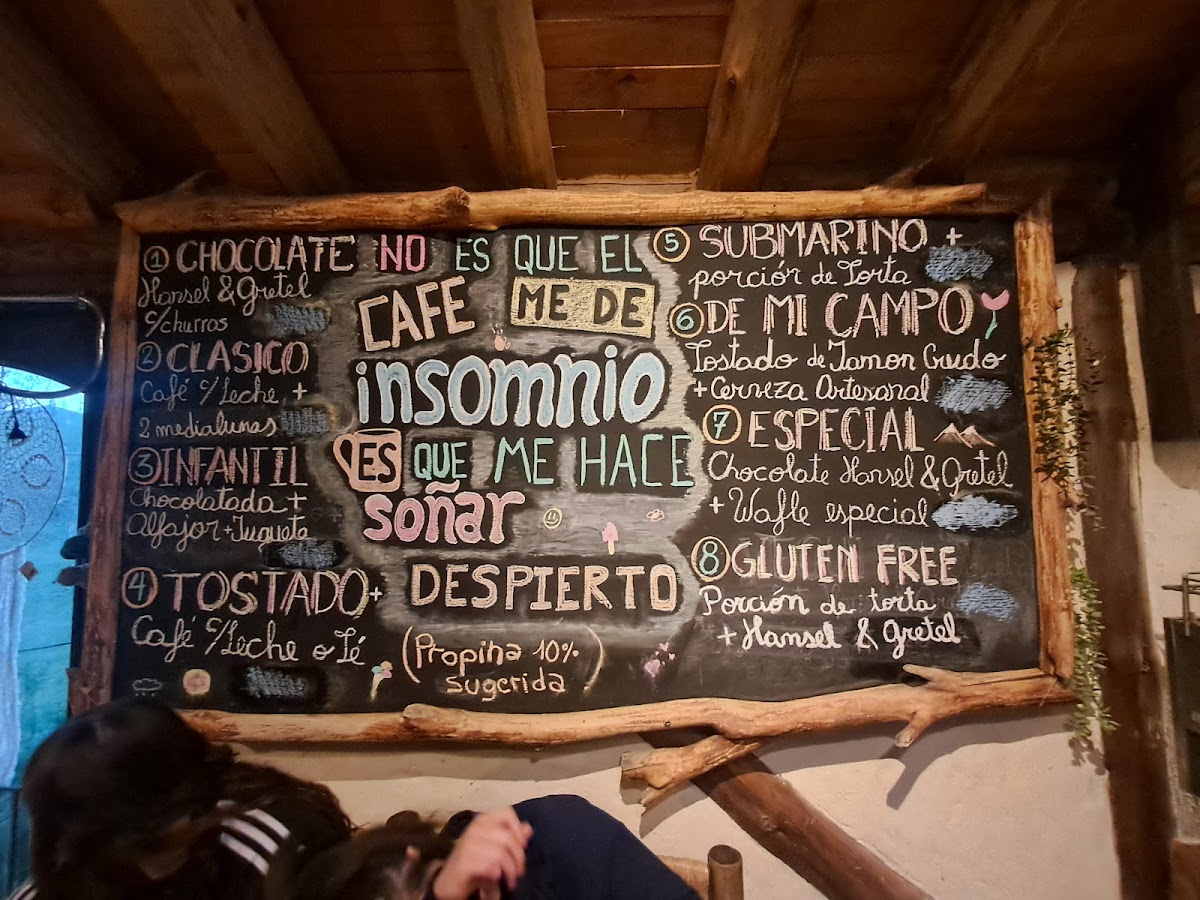 1 CHOCOLATE
Hansel & Gretel
c/churros
2 CLASICO
Café c/Leche +
2 medialunas
3 INFANTIL
Chocolatada +
Alfajor + Juguete
4 TOSTADO +
Café c/Leche o Té
NO ES QUE EL
CAFE ME DE
insomnio
ES QUE ME HACE
soñar
DESPIERTO
(Propina 10%
sugerida)
5 SUBMARINO +
porción de Torta
6 DE MI CAMPO
Tostado de Jamon Crudo
+ Cerveza Artesanal
7 ESPECIAL
Chocolate Hansel & Gretel
+ Wafle especial
8 GLUTEN FREE
Porción de torta
+ Hansel & Gretel